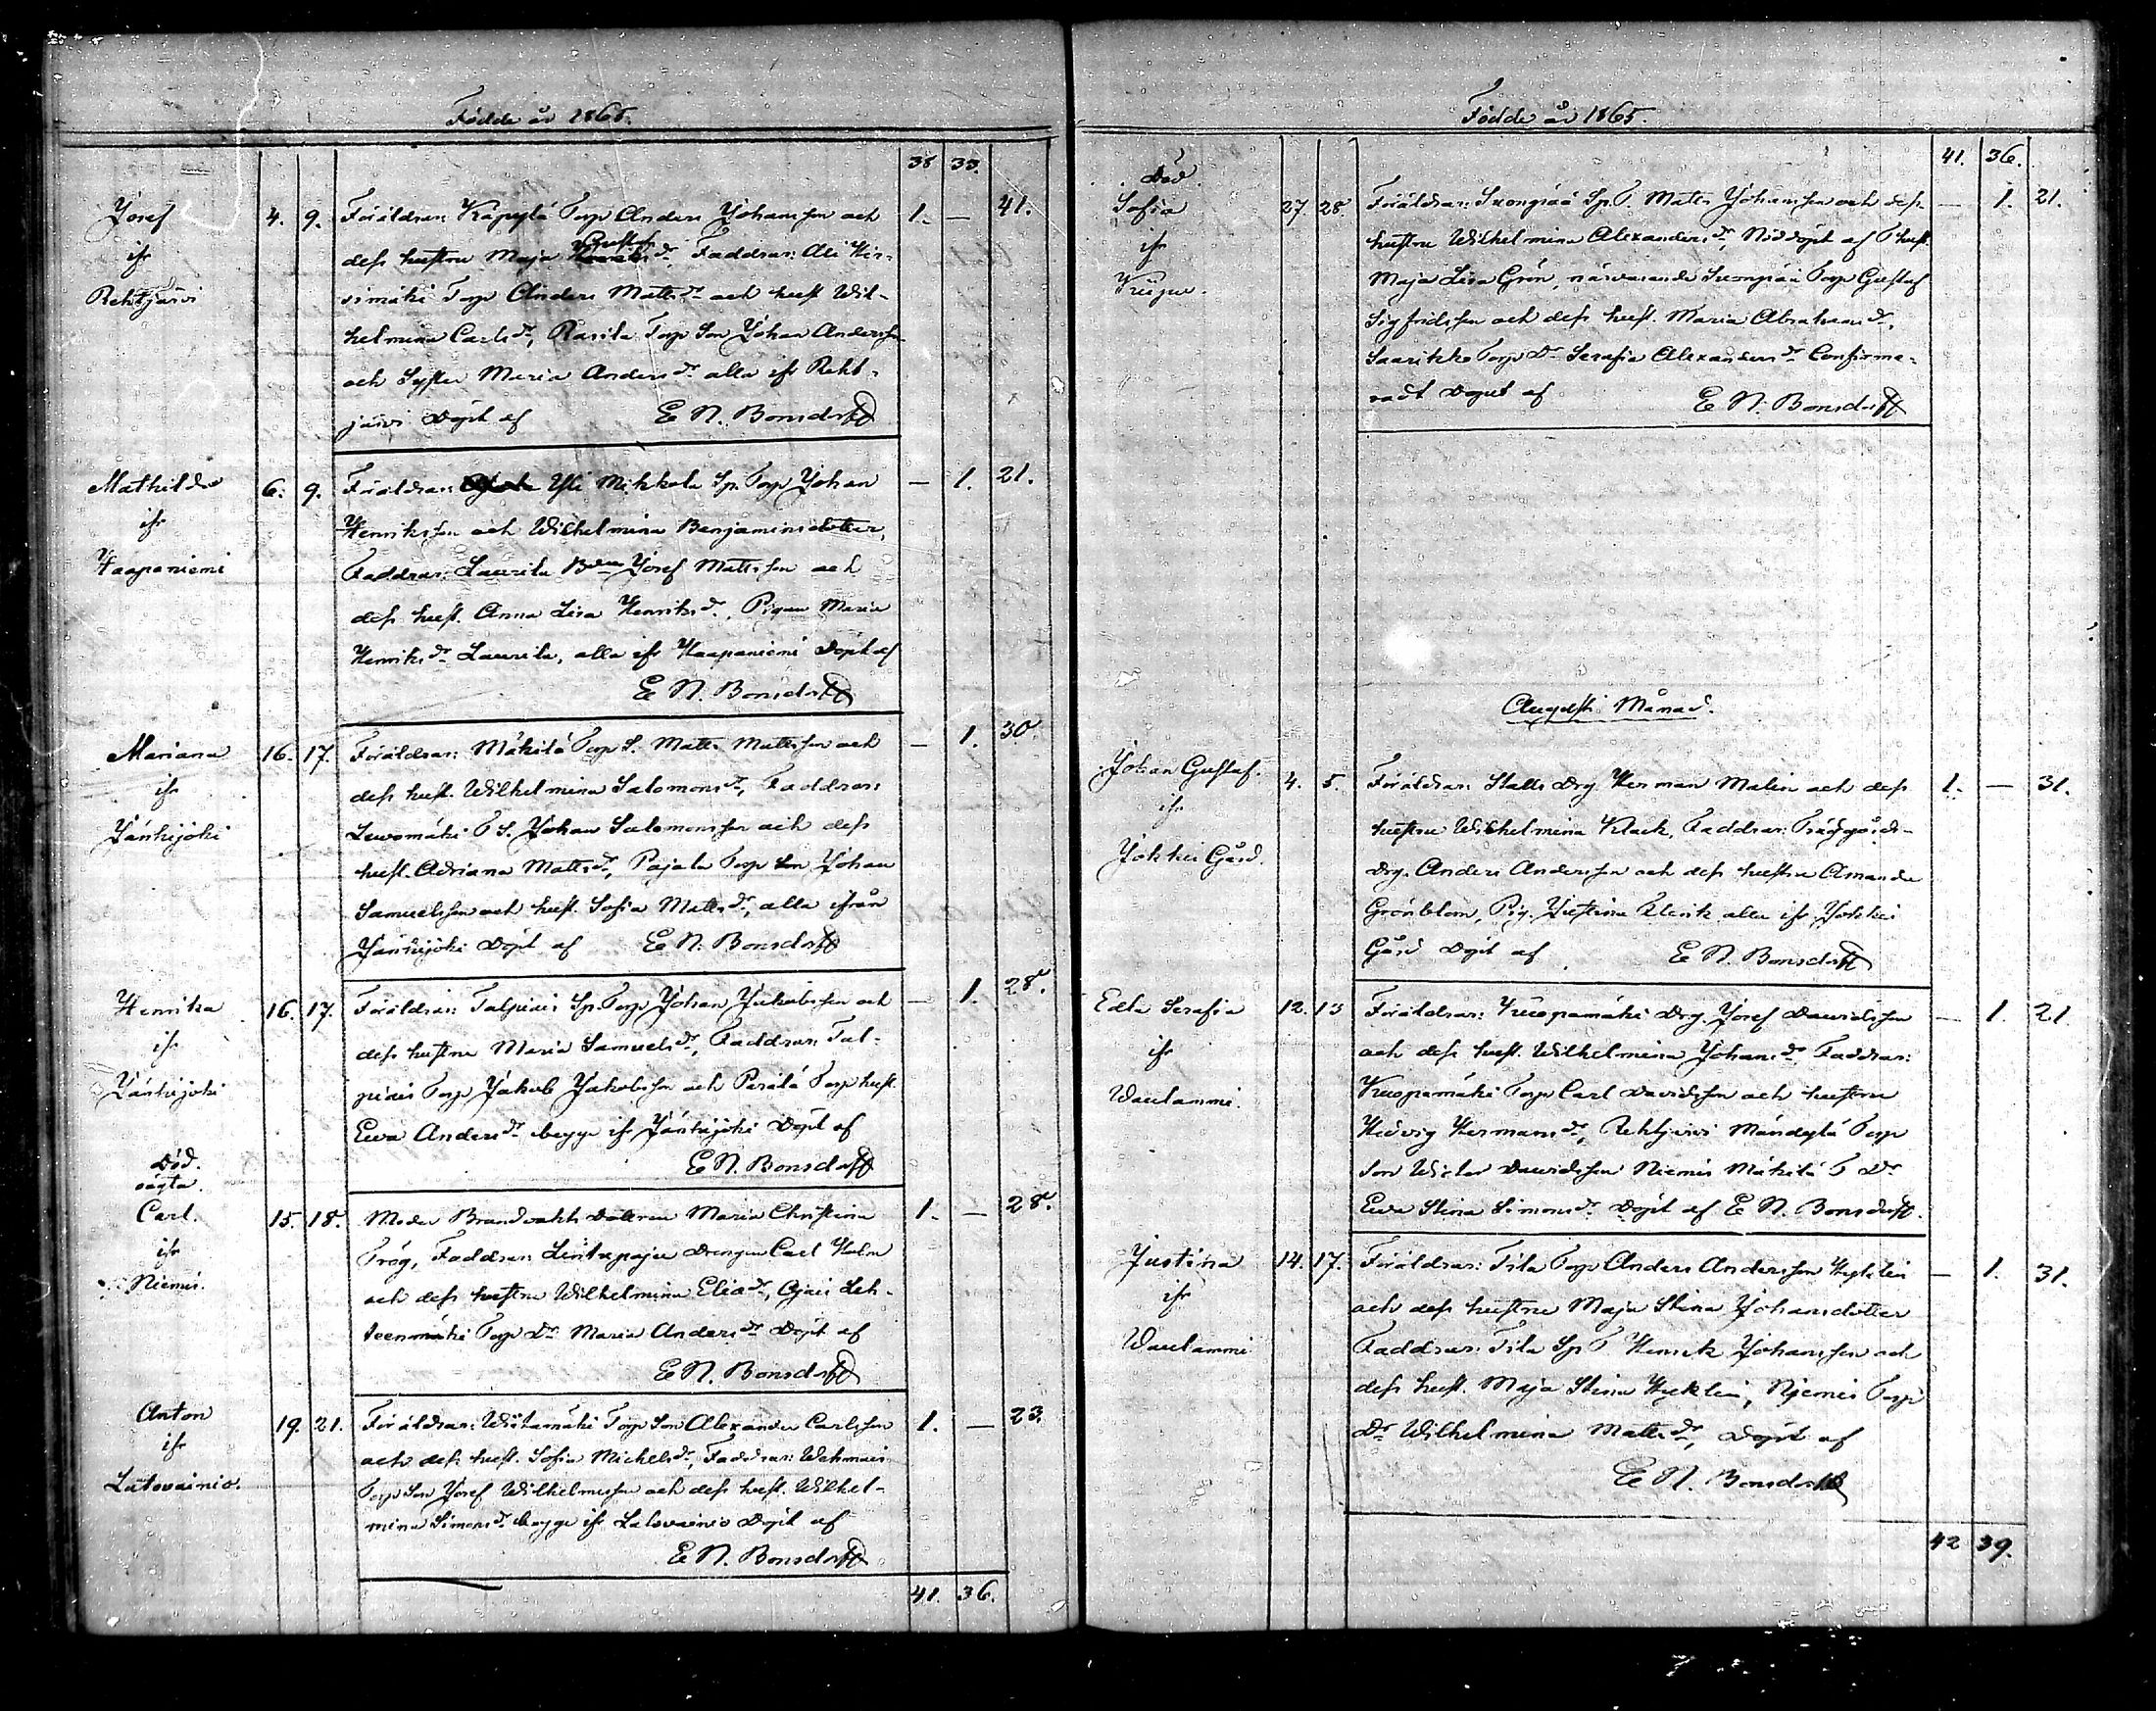 Födde år 1865.
38 33.
Josef 4. 9. Föräldrar: Käpylä Torp Anders Johansson och 1. — 41.
ifr dess hustru Maja Gustafsdr, Faddrar: Ali Hir-
Rehtijärvi simäki Torp Anders Mattss och hust Wil-
helmina Carlsdr, Rasila Torp Son Johan Andersson
och Syster Maria Andersdr alla ifr Reht-
järvi Döpt af E N. Bonsdorff
Mathilda 6. 9. Föräldrar: Yli Mikkola Sp. Torp Johan — 1. 21.
ifr Henriksson och Wilhelmina Benjaminsdotter,
Haapaniemi Faddrar: Laurila Bden Josef Mattsson och
dess hust. Anna Lisa Henriksdr, Pigan Maria
Henriksdr Laurila, alla ifr Haapaniemi Döpt af
E N. Bonsdorff
Mariana 16. 17. Föräldrar: Mäkilä Torp S. Matts Mattsson och — 1. 30.
ifr dess hust. Wilhelmina Salomonsdr, Faddrar:
Jänhijoki Lewomäki T S. Johan Salomonsson och dess
hust. Adriana Mattsdr, Pajala Torp Son Johan
Samuelsson och hust. Sofia Mattsdr, alla ifrån
Jänhijoki Döpt af E N. Bonsdorff
Henrika 16. 17. Föräldrar: Talpiais Sp. Torp Johan Jakobsson och — 1. 28.
ifr dess hustru Maria Samuelsdr, Faddrar: Tal-
Jänhijoki piais Torp Jakob Jakobsson och Perälä Torp hust.
Ewa Andersdr begge ifr Jänhijoki Döpt af
Död. E N. Bonsdorff
oägta.
Carl. 15. 18. Moder Brandvakts Dottren Maria Christina 1. — 28.
ifr Trög, Faddrar: Lintupaju Drengen Carl Holm
Niemis. och dess hustru Wilhelmina Eliadr, Ojais Leh-
teenmäki Torp Dr Maria Andersdr Döpt af
E N. Bonsdorff
Anton 19. 21. Föräldrar: Wiitamäki Torp Son Alexander Carlsson 1. — 23.
ifr och dess hust. Sofia Michelsdr, Faddrar: Wahmais
Latovainio. Torp Son Josef Wilhelmsson och dess hust. Wilhel-
mina Simonsdr begge ifr Latovainio Döpt af
E N. Bonsdorff
41. 36.
Födde år 1865.
41. 36.
Död.
Sofia 27. 28. Föräldrar: Suonpää Sp. T. Matts Johansson och dess — 1. 21.
ifr hustru Wilhelmina Alexandersdr, Nöddöpt af T hust.
Maja Lisa Grön, närvarande Suonpää Torp Gustaf
Sigfridsson och dess hust. Maria Abrahamsdr,
Saarikko Torp Dr Serafia Alexandersdr Confirme-
radt Dopet af E N. Bonsdorff
Augusti Månad.
Johan Gustaf. 4. 5. Föräldrar: Stalls Drg Herman Malin och dess 1. — 31.
ifr hustru Wilhelmina Klack, Faddrar: Trädgårds-
Jokkis Gård. Drg. Anders Andersson och dess hustru Amanda
Grönblom, Pig. Justina Klenk alla ifr Jokkis
Gård Döpt af E N. Bonsdorff
Edla Serafia 12. 13 Föräldrar: Kuopamäki Drg. Josef Davidsson — 1. 21.
ifr och dess hust. Wilhelmina Johansdr, Faddrar:
Waulammi. Kuopamäki Torp Carl Davidsson och hustru
Hedvig Hermansdr, Rehtijärvi Mändylä Torp
Son Wictor Davidsson Niemis Mäkilä T Dr
Ewa Stina Simonsdr Döpt af E N. Bonsdorff.
Justina 14. 17. Föräldrar: Tila Torp Anders Andersson — 1. 31.
ifr och dess hustru Maja Stina Johansdotter
Waulammi Faddrar: Tila Sp T Henrik Johansson och
dess hust. Maja Stina, Niemis Torp
Dr Wilhelmina Mattsdr, Döpt af
E N. Bonsdorff
42 39.